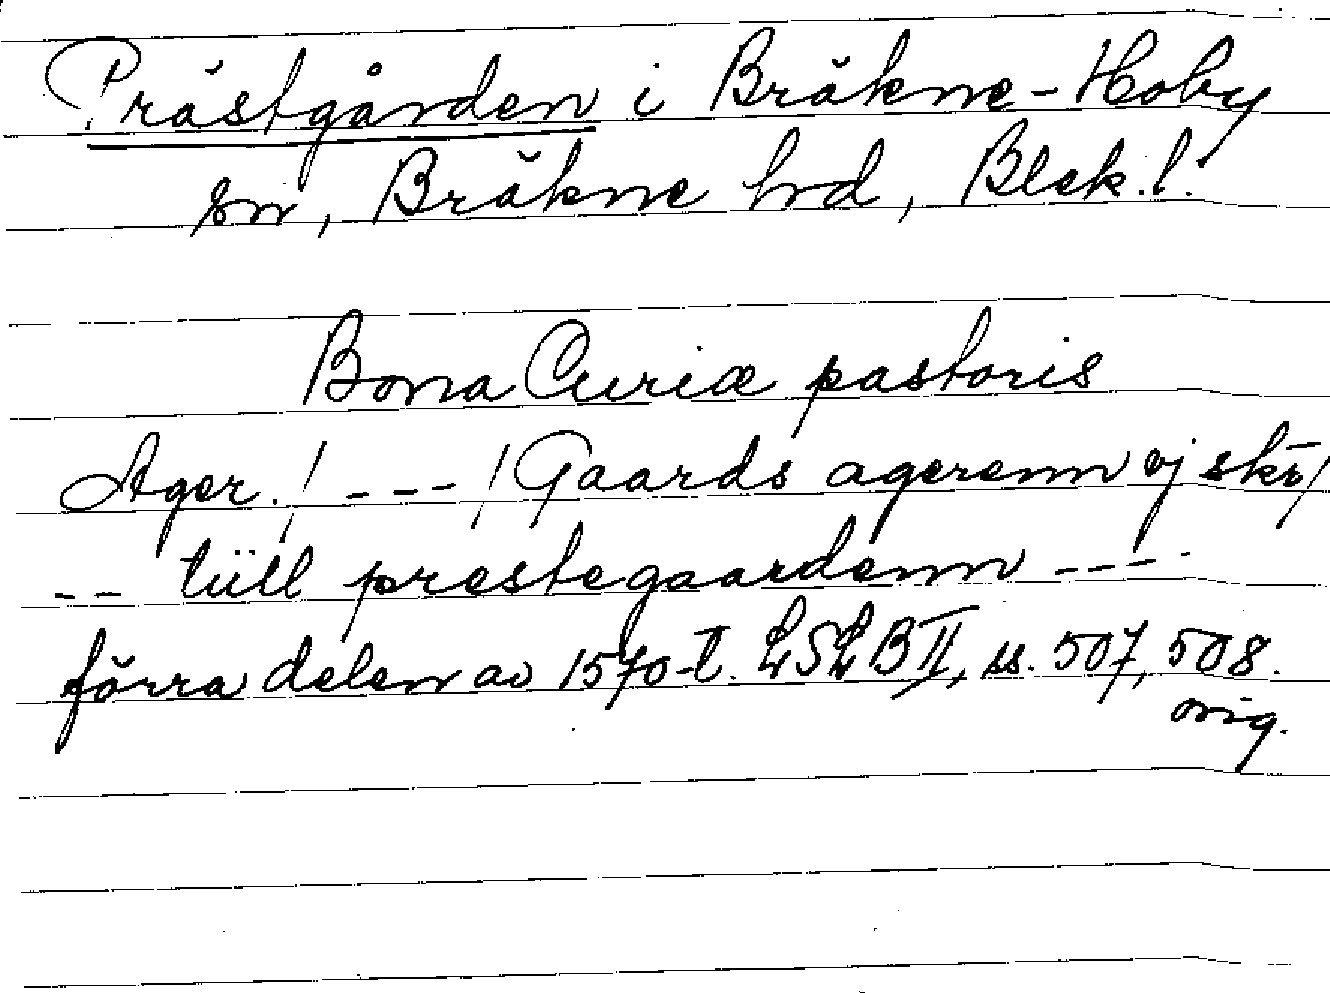 Prästgården i Bräkne-Hoby
sn, Bräkne hd, Blek.l.
Bona Curiæ pastoris
Ager. / --- / Gaards agerenn ej skr /
-- tüll prestegaardenn ---
förra delen av 1570-t. LSLB II, ss. 507, 508.
orig.